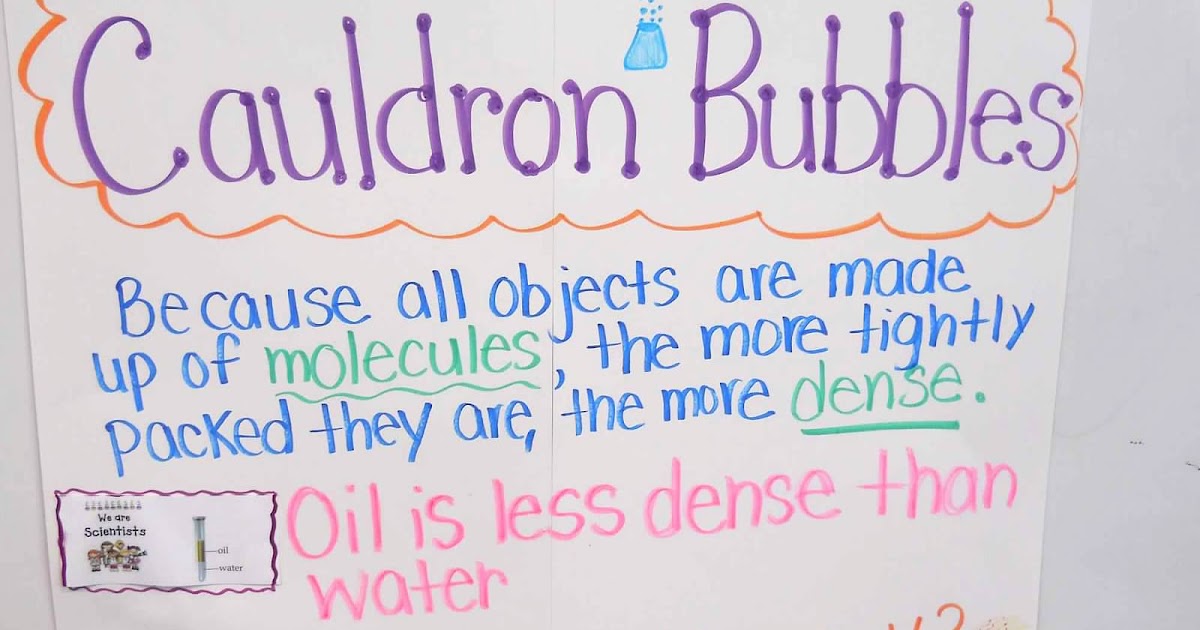 Cauldron Bubbles
Because all objects are made
up of molecules, the more tightly
packed they are, the more dense.
We are
Scientists
oil
water
Oil is less dense than
water